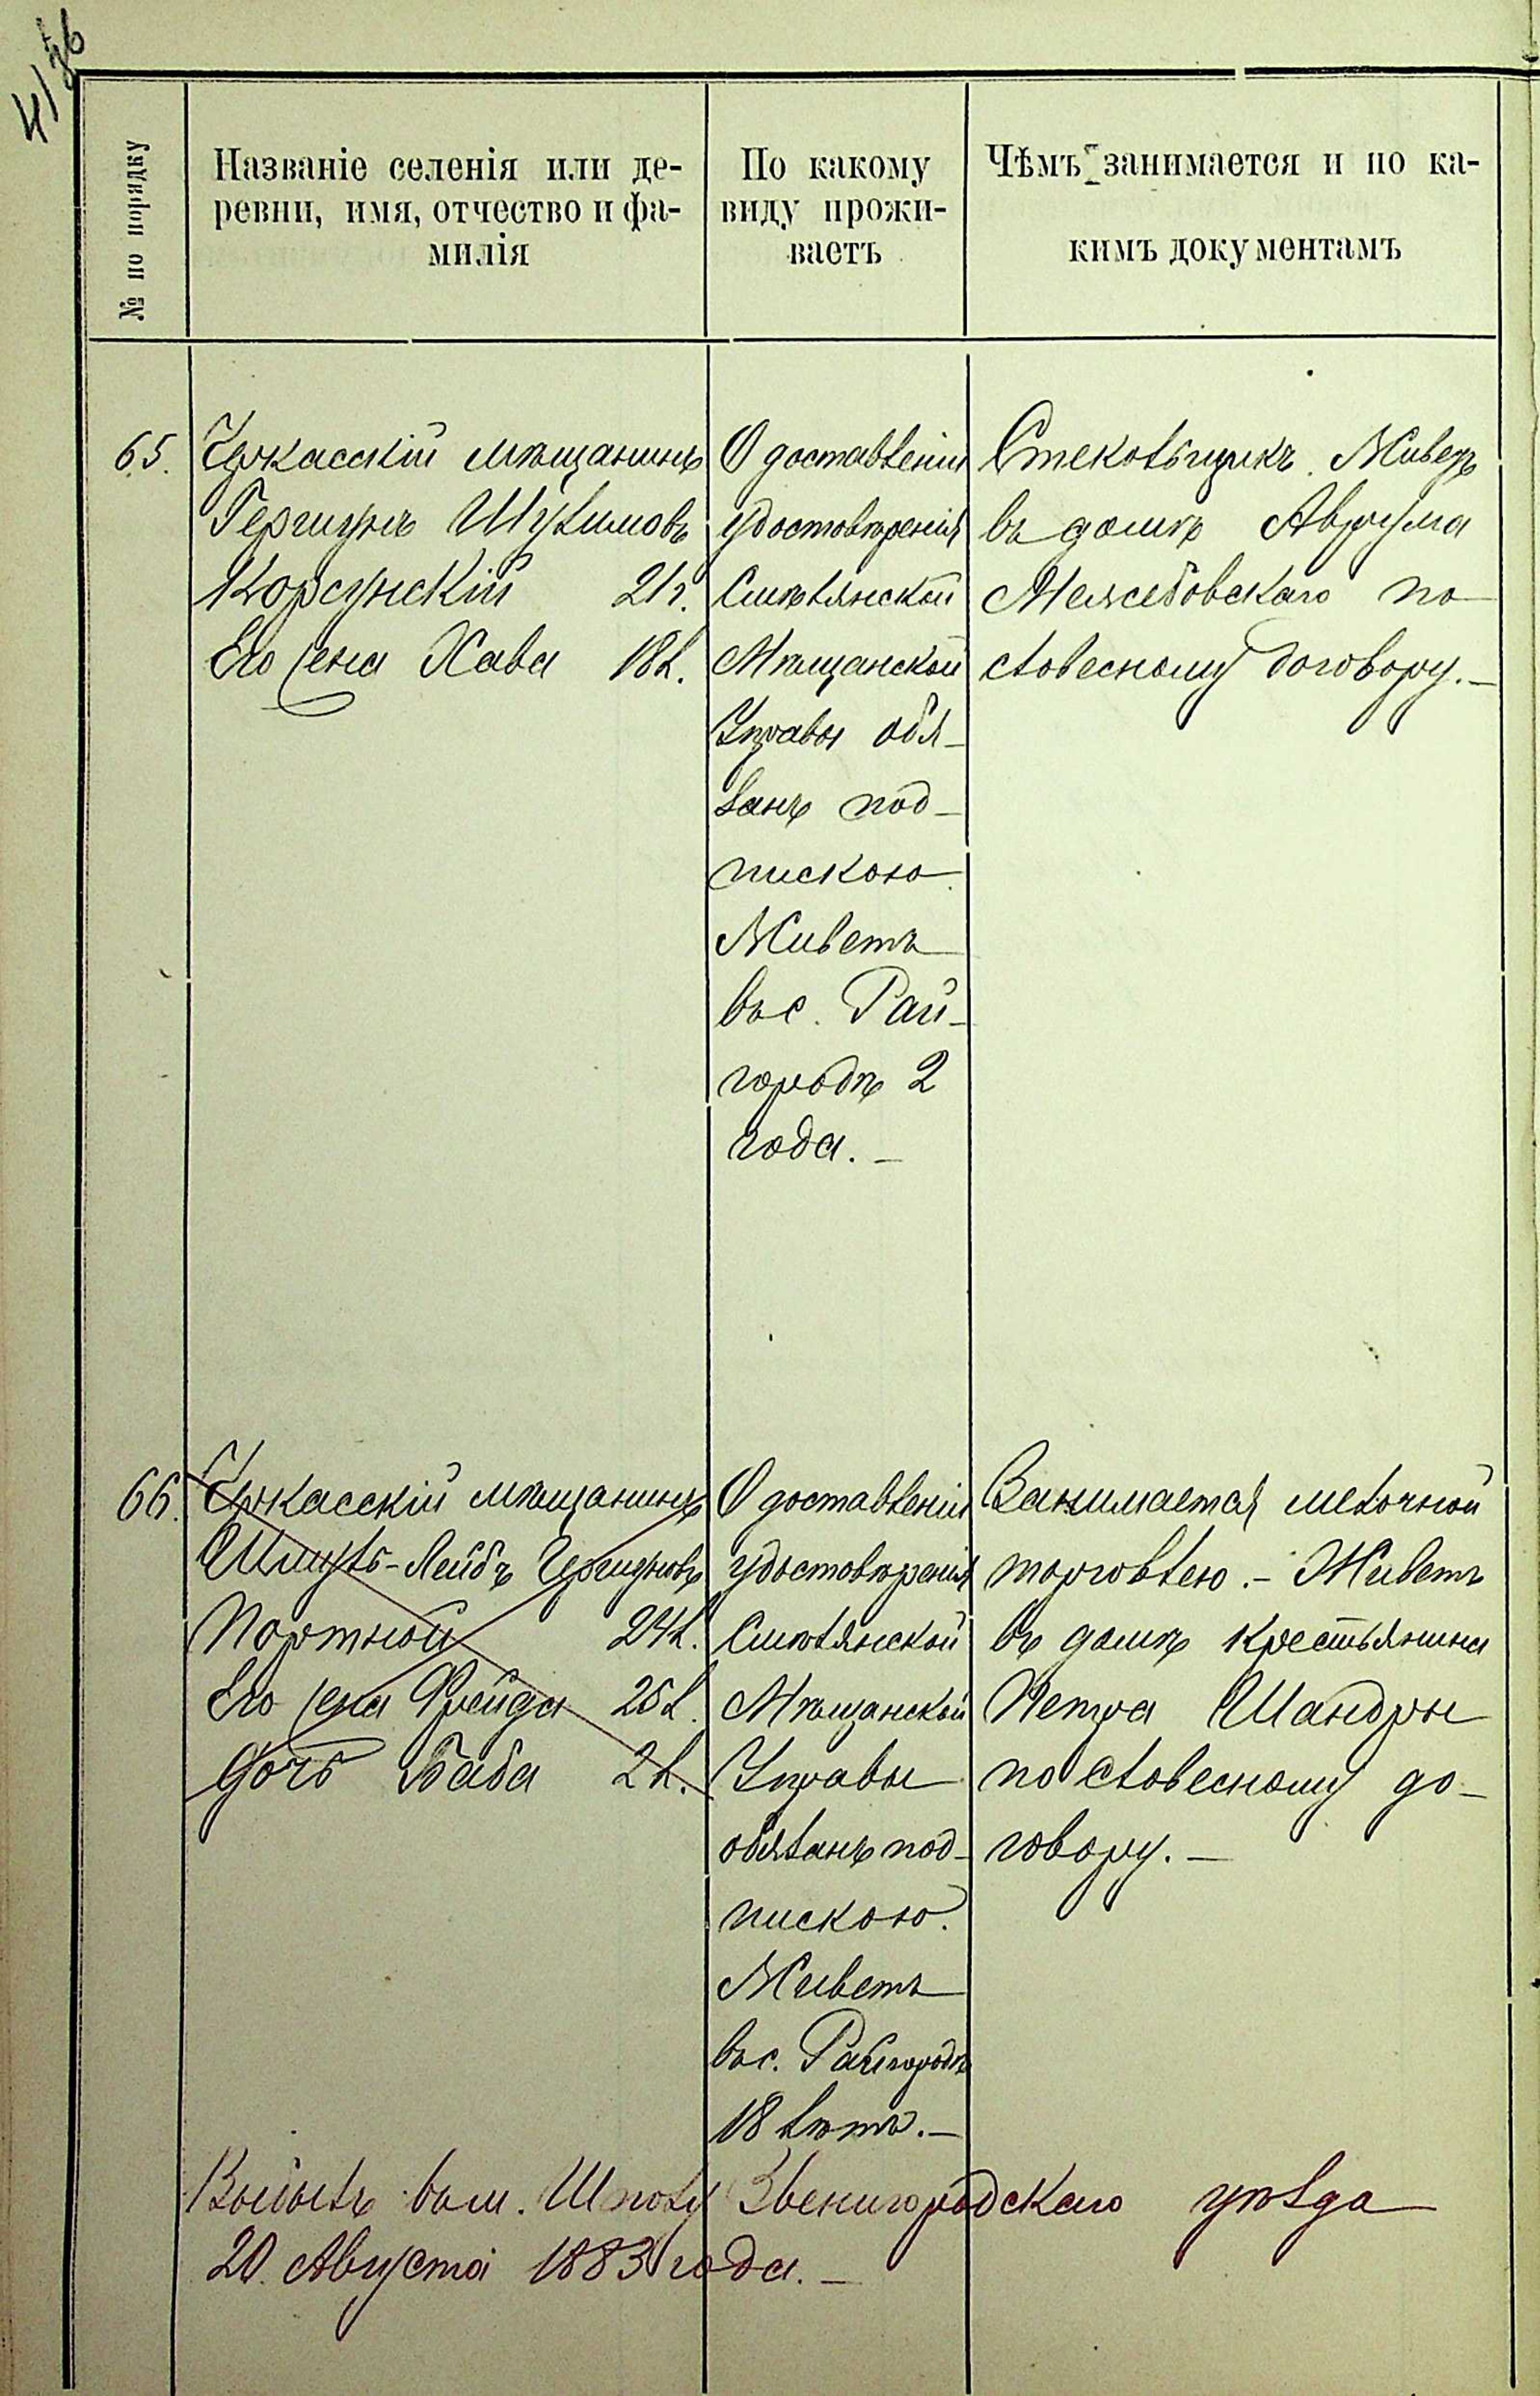 41
№ по порядку
Названіе селенія или де-
ревни, имя, отчество и фа-
милія
По какому
виду прожи-
ваетъ
Чѣмъ занимается и по ка-
кимъ документамъ
65.
Черкасскій мѣщанинъ
Гершунъ Шулимовъ
Корсунскій 21 г.
Его жена Хава 18 л.
О доставленіи
удостовѣренія
Смѣлянской
Мѣщанской
Управы обя-
занъ под-
пискою
Живетъ
въ с. Рай-
городѣ 2
года. —
Стекольщикъ. Живетъ
въ домѣ Аврума
Межибовскаго по
словесному договору. —
66.
Черкасскій мѣщанинъ
Шмуль-Лейбъ Гершуновъ
Портной 24 л.
Его жена Фрейда 25 л.
дочь Баба 2 л.
О доставленіи
удостовѣренія
Смѣлянской
Мѣщанской
Управы
обязанъ под-
пискою.
Живетъ
въ с. Райгородѣ
18 лѣтъ. —
Занимается мелочной
торговлею. — Живетъ
въ домѣ крестьянина
Петра Шандры
по словесному до-
говору. —
Выбылъ въ м. Шполу Звенигородскаго уѣзда
20 Августа 1883 года. —